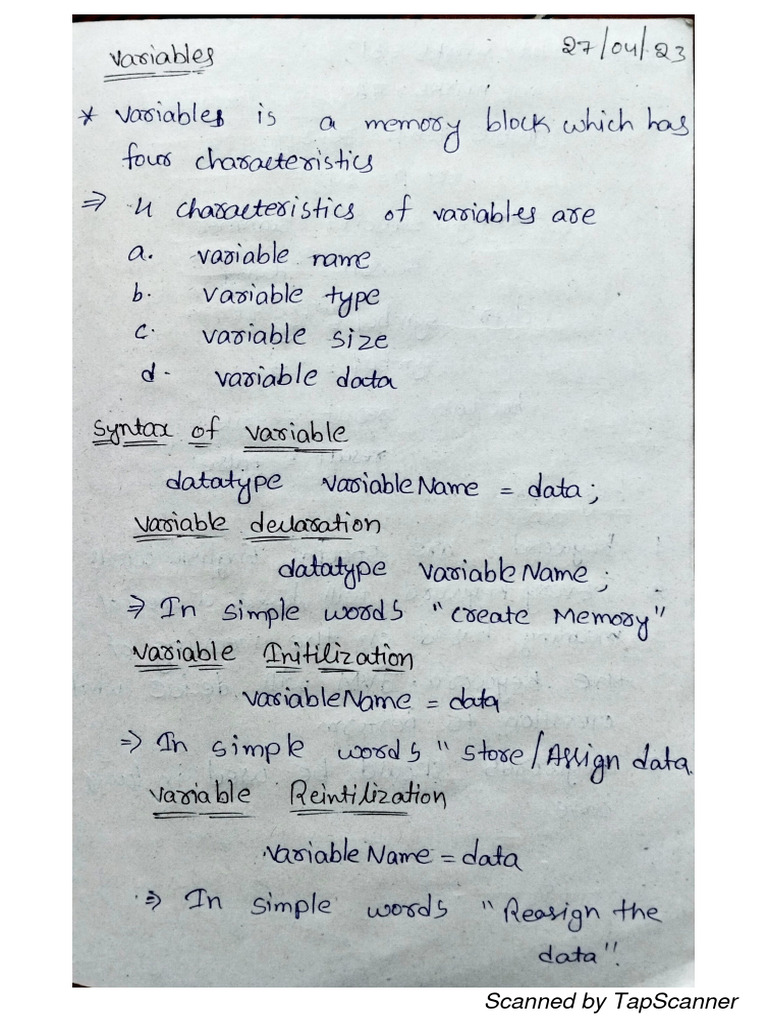 variables
27/04/23
* Variables is a memory block which has
four characteristics
⇒ 4 characteristics of variables are
a. variable name
b. variable type
c. variable size
d. variable data
Syntax of variable
datatype variableName = data;
variable declaration
datatype variableName;
⇒ In simple words "create Memory"
variable Initilization
variableName = data
⇒ In simple words "Store/Assign data
variable Reintilization
variableName = data
⇒ In simple words "Reasign the
data".
Scanned by TapScanner